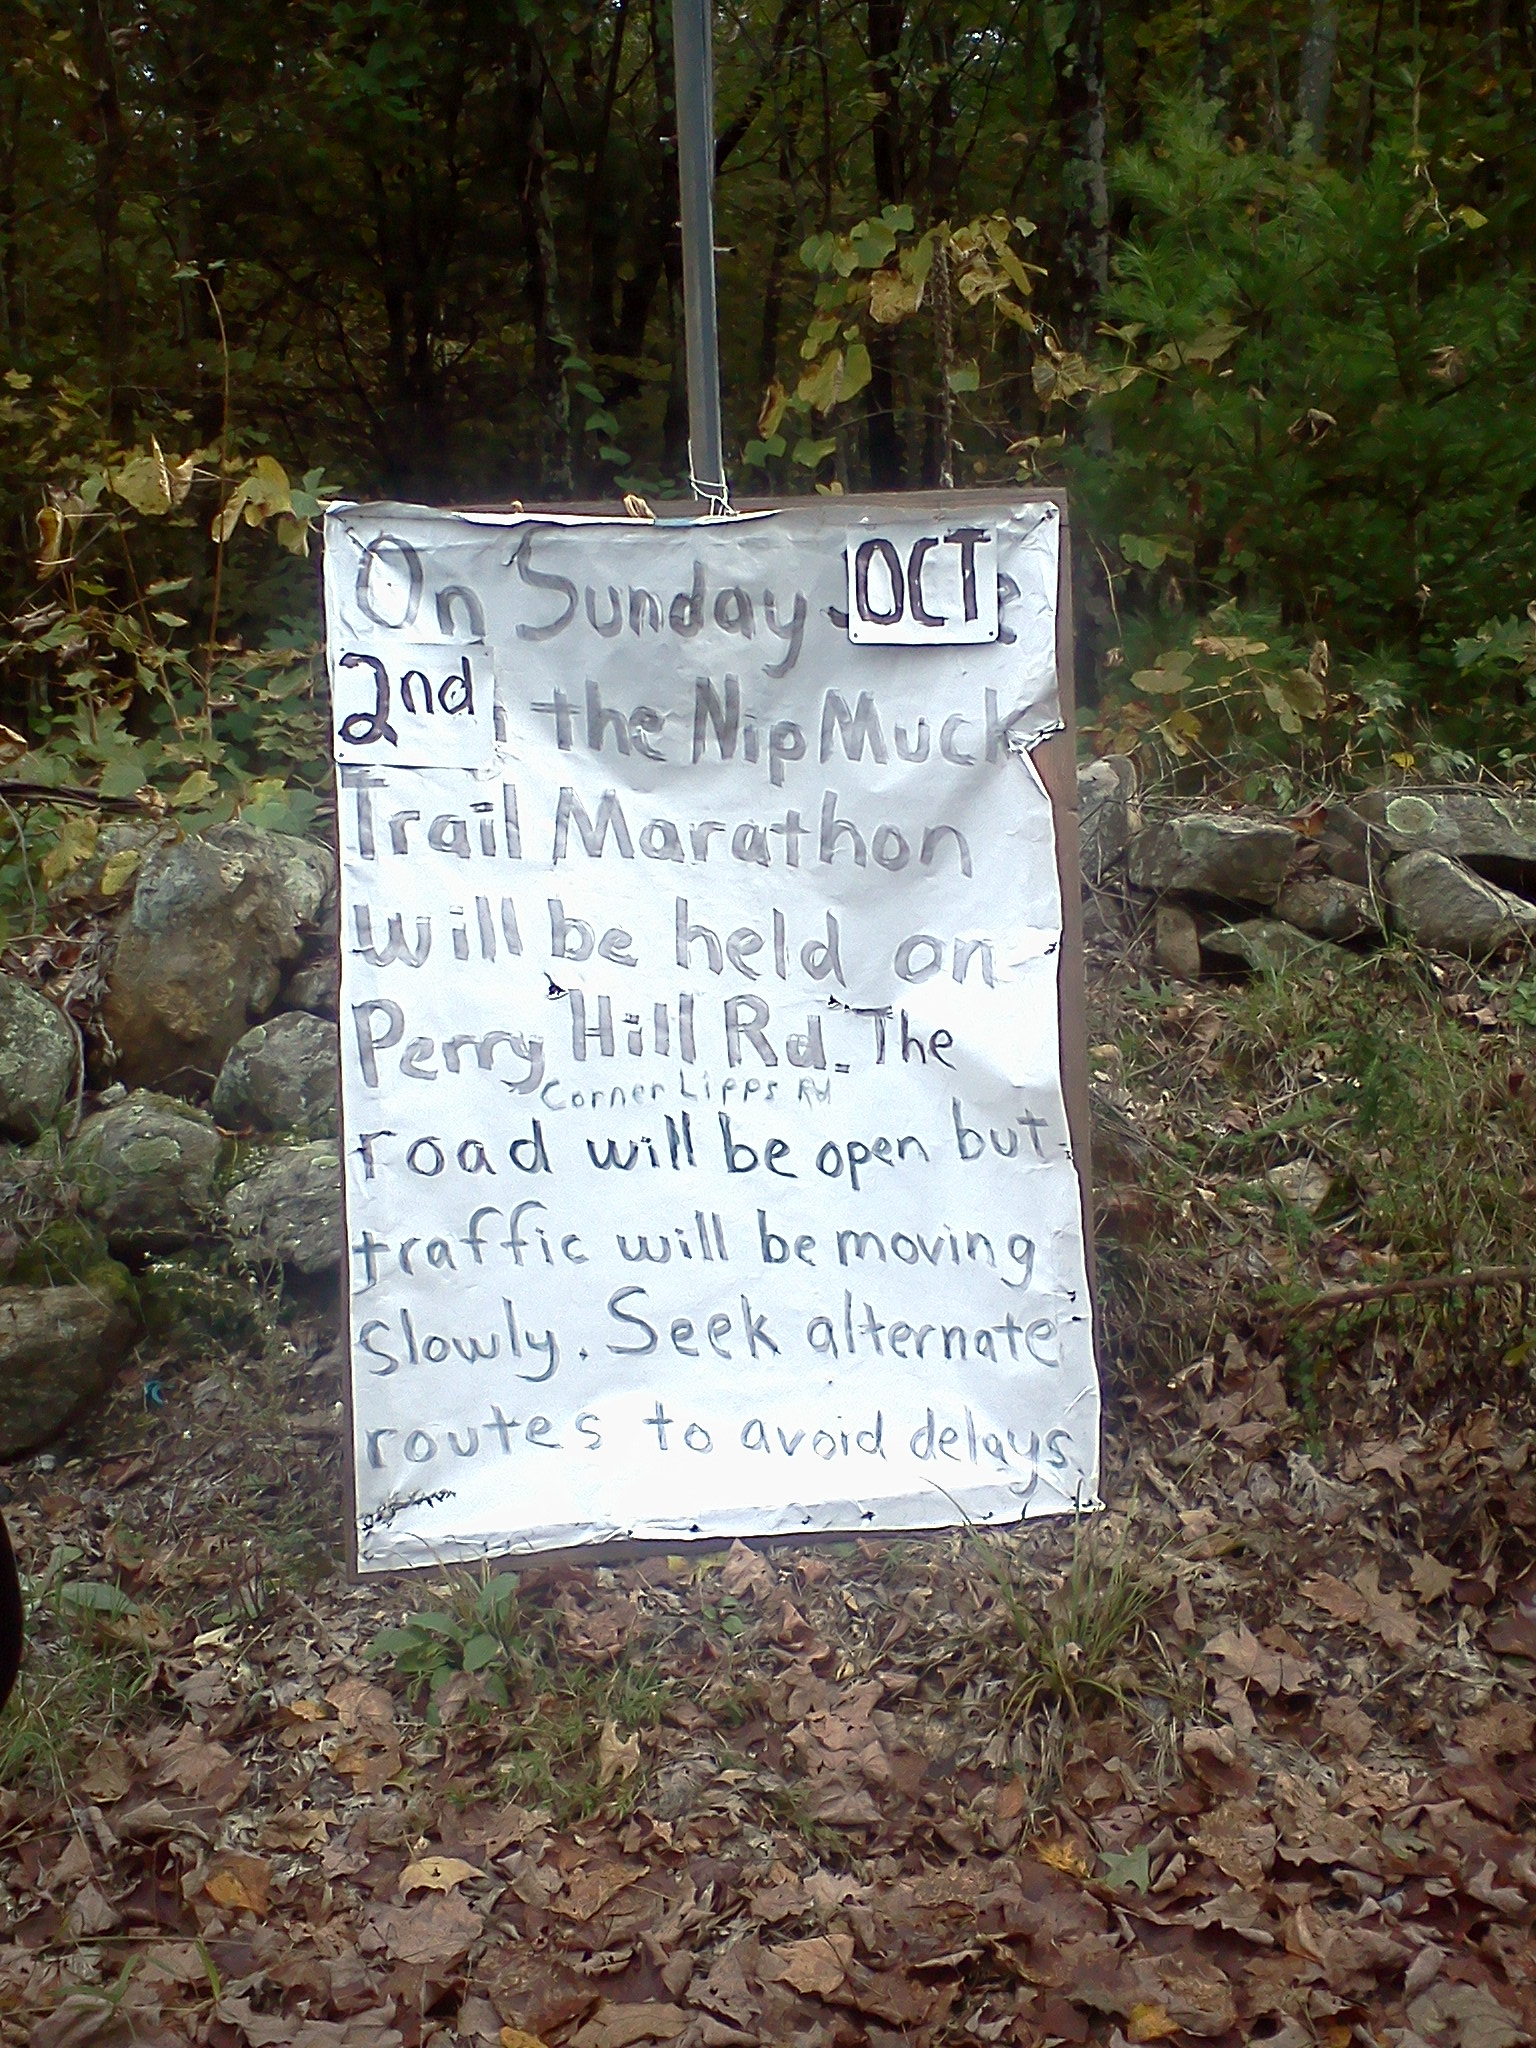 On Sunday OCT
2nd the NipMuck
Trail Marathon
will be held on
Perry Hill Rd. The
Corner Lipps Rd
road will be open but
traffic will be moving
slowly. Seek alternate
routes to avoid delays.